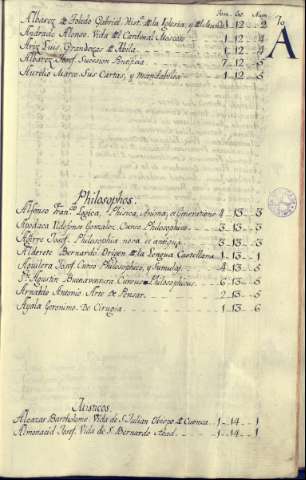 Tom. Cap. Num.
70
A
Albarez de Toledo Gabriel Hist. de la Iglesia, y del Mundo 1 - 12 - 2
Andrade Alonso. Vida del Cardenal Moscoso 1 - 12 - 4
Ariz Luis. Grandezas de Abila 1 - 12 - 4
Albarez Josef. Sucesion Pontificia 7 - 12 - 5
Aurelio Marco sus Cartas, y 1 - 12 - 5
Philosophos.
Alfonso Fran.co Logica, Phisica, Anima, et Generatione 4 - 13 - 3
Apodaca Ildefonso Gonzalez. Curso Philosophico 3 - 13 - 3
Alfaro Josef. Philosophia nova et antiqua 3 - 13 - 3
Aldrete Bernardo Origen de la Lengua Castellana 1 - 13 - 1
Aguilera Josef. Curso Philosophico, y Sumulas 4 - 13 - 5
S.n Agustin Buenaventura Cursus Philosophicus 6 - 13 - 5
Arnaldo Antonio Arte de Pensar 2 - 13 - 5
Ayala Geronimo. De Cirugia 1 - 13 - 6
Misticos.
Alcazar Bartholome. Vida de S. Julian Obispo de Cuenca 1 - 14 - 1
Almonacid Josef. Vida de S. Bernardo Abad 1 - 14 - 1